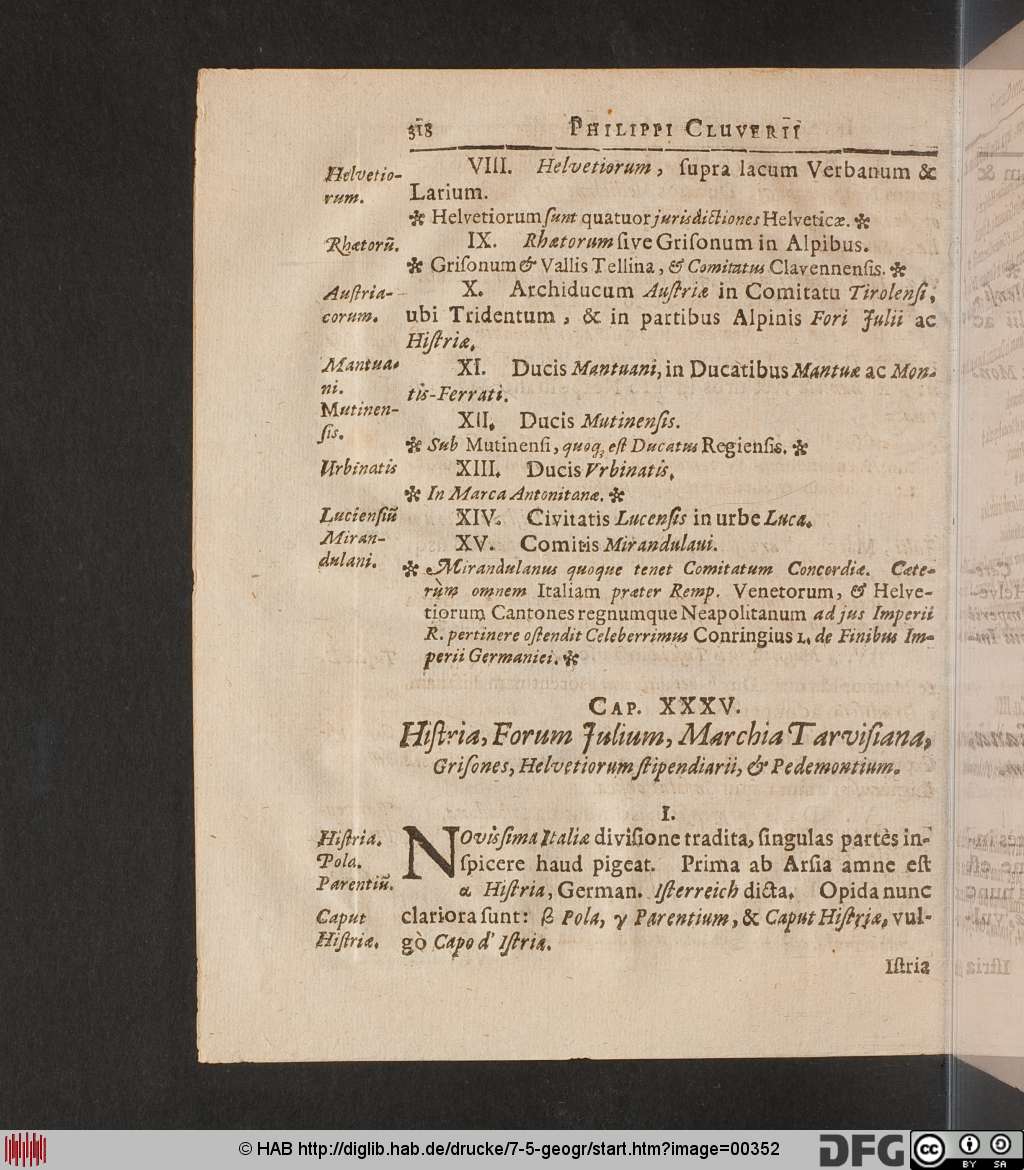 318 PHILIPPI CLUVERII
Helvetio-
rum.
VIII. Helvetiorum, ſupra lacum Verbanum &
Larium.
✼ Helvetiorum ſunt quatuor jurisdictiones Helveticæ. ✼
Rhætorũ.
IX. Rhætorum ſive Griſonum in Alpibus.
✼ Griſonum & Vallis Tellina, & Comitatus Clavennenſis. ✼
Auſtria-
corum.
X. Archiducum Auſtriæ in Comitatu Tirolenſi,
ubi Tridentum, & in partibus Alpinis Fori Julii ac
Hiſtriæ.
Mantua-
ni.
XI. Ducis Mantuani, in Ducatibus Mantuæ ac Mon-
tis-Ferrati.
Mutinen-
ſis.
XII. Ducis Mutinenſis.
✼ Sub Mutinenſi, quoq; eſt Ducatus Regienſis. ✼
Urbinatis
XIII. Ducis Vrbinatis.
✼ In Marca Antonitanæ. ✼
Lucienſiũ
XIV. Civitatis Lucenſis in urbe Luca.
Miran-
dulani.
XV. Comitis Mirandulaui.
✼ Mirandulanus quoque tenet Comitatum Concordiæ. Cæte-
rùm omnem Italiam præter Remp. Venetorum, & Helve-
tiorum Cantones regnumque Neapolitanum ad jus Imperii
R. pertinere oſtendit Celeberrimus Conringius L. de Finibus Im-
perii Germaniei. ✼
CAP. XXXV.
Hiſtria, Forum Julium, Marchia Tarviſiana,
Griſones, Helvetiorum ſtipendiarii, & Pedemontium.
I.
Hiſtria.
Pola.
Parentiũ.
NOviſsima Italiæ diviſione tradita, ſingulas partes in-
ſpicere haud pigeat. Prima ab Arſia amne eſt
α Hiſtria, German. Iſterreich dicta. Opida nunc
Caput
Hiſtriæ.
clariora ſunt: β Pola, γ Parentium, & Caput Hiſtriæ, vul-
gò Capo d' Iſtria.
Iſtria
© HAB http://diglib.hab.de/drucke/7-5-geogr/start.htm?image=00352
DFG
cc BY SA